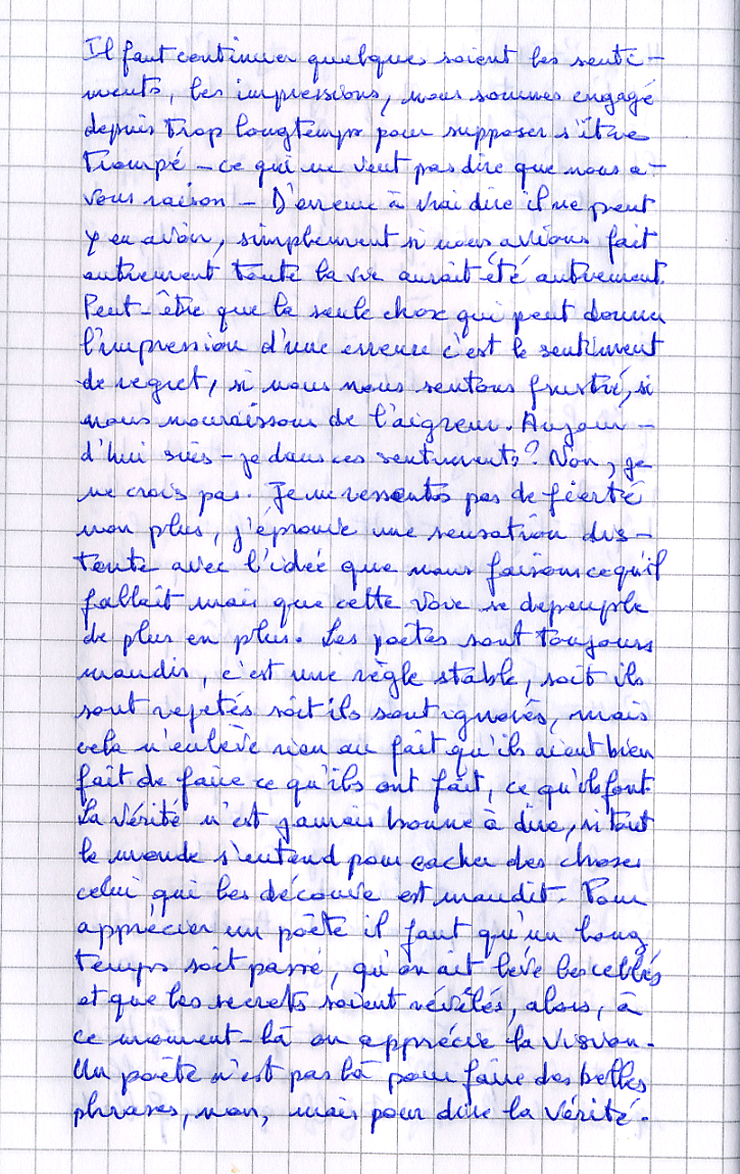 Il faut continuer quelques soient les senti-
ments, les impressions, nous sommes engagé
depuis trop longtemps pour supposer s'être
trompé – ce qui ne veut pas dire que nous a-
vons raison – D'erreur à vrai dire il ne peut
y en avoir, simplement si nous avions fait
autrement toute la vie aurait été autrement.
Peut-être que la seule chose qui peut donner
l'impression d'une erreur c'est le sentiment
de regret, si nous nous sentons frustré, si
nous nourrissons de l'aigreur. Aujour-
d'hui suis-je dans ces sentiments? Non, je
ne crois pas. Je ne ressents pas de fierté
non plus, j'éprouve une sensation dis-
tante avec l'idée que nous faisons ce qu'il
fallait mais que cette voie se dépeuple
de plus en plus. Les poètes sont toujours
maudis, c'est une règle stable, soit ils
sont rejetés soit ils sont ignorés, mais
cela n'enlève rien au fait qu'ils aient bien
fait de faire ce qu'ils ont fait, ce qu'ils font.
La vérité n'est jamais bonne à dire, si tout
le monde s'entend pour cacher des choses
celui qui les découvre est maudit. Pour
apprécier un poète il faut qu'un long
temps soit passé, qu'on ait levé les cellés
et que les secrets soient révélés, alors, à
ce moment-là on apprécie la vision.
Un poète n'est pas là pour faire des belles
phrases, non, mais pour dire la vérité.